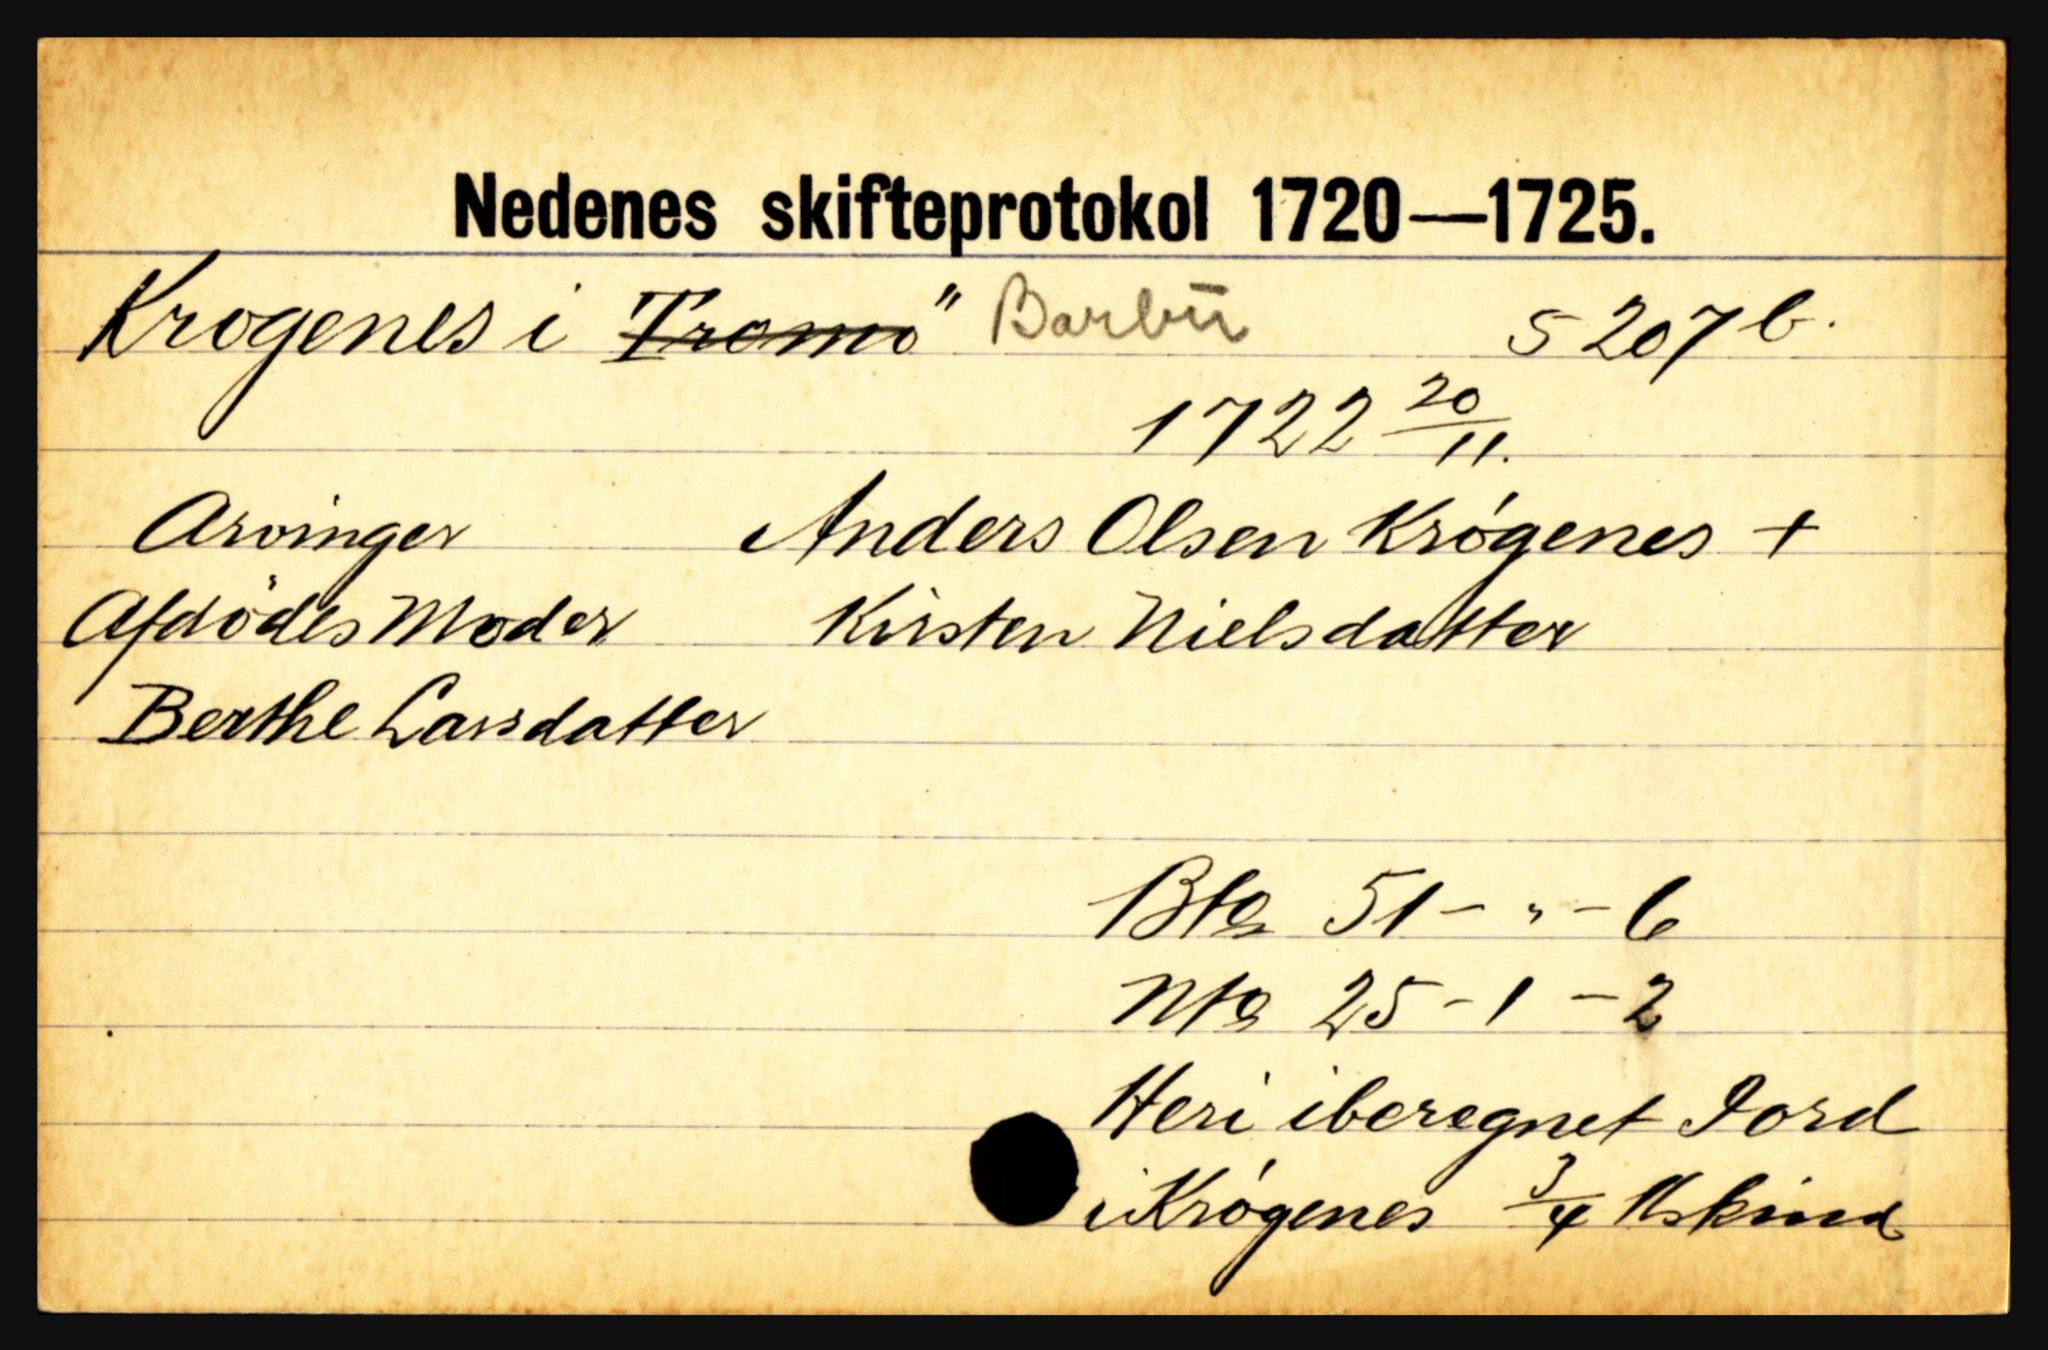 Nedenes skifteprotokol 1720—1725.
Krogenes i Tromö Barbu S 207 b.
1722 20/11.
Arvinger Anders Olsen Krógenes +
Afdödes Moder Kirsten Nielsdatter
Berthe Larsdatter
Bto 51 - " - 6
Nto 25 - 1 - 2
Heri iberegnet Jord
i Krógenes 3/4 Hskind